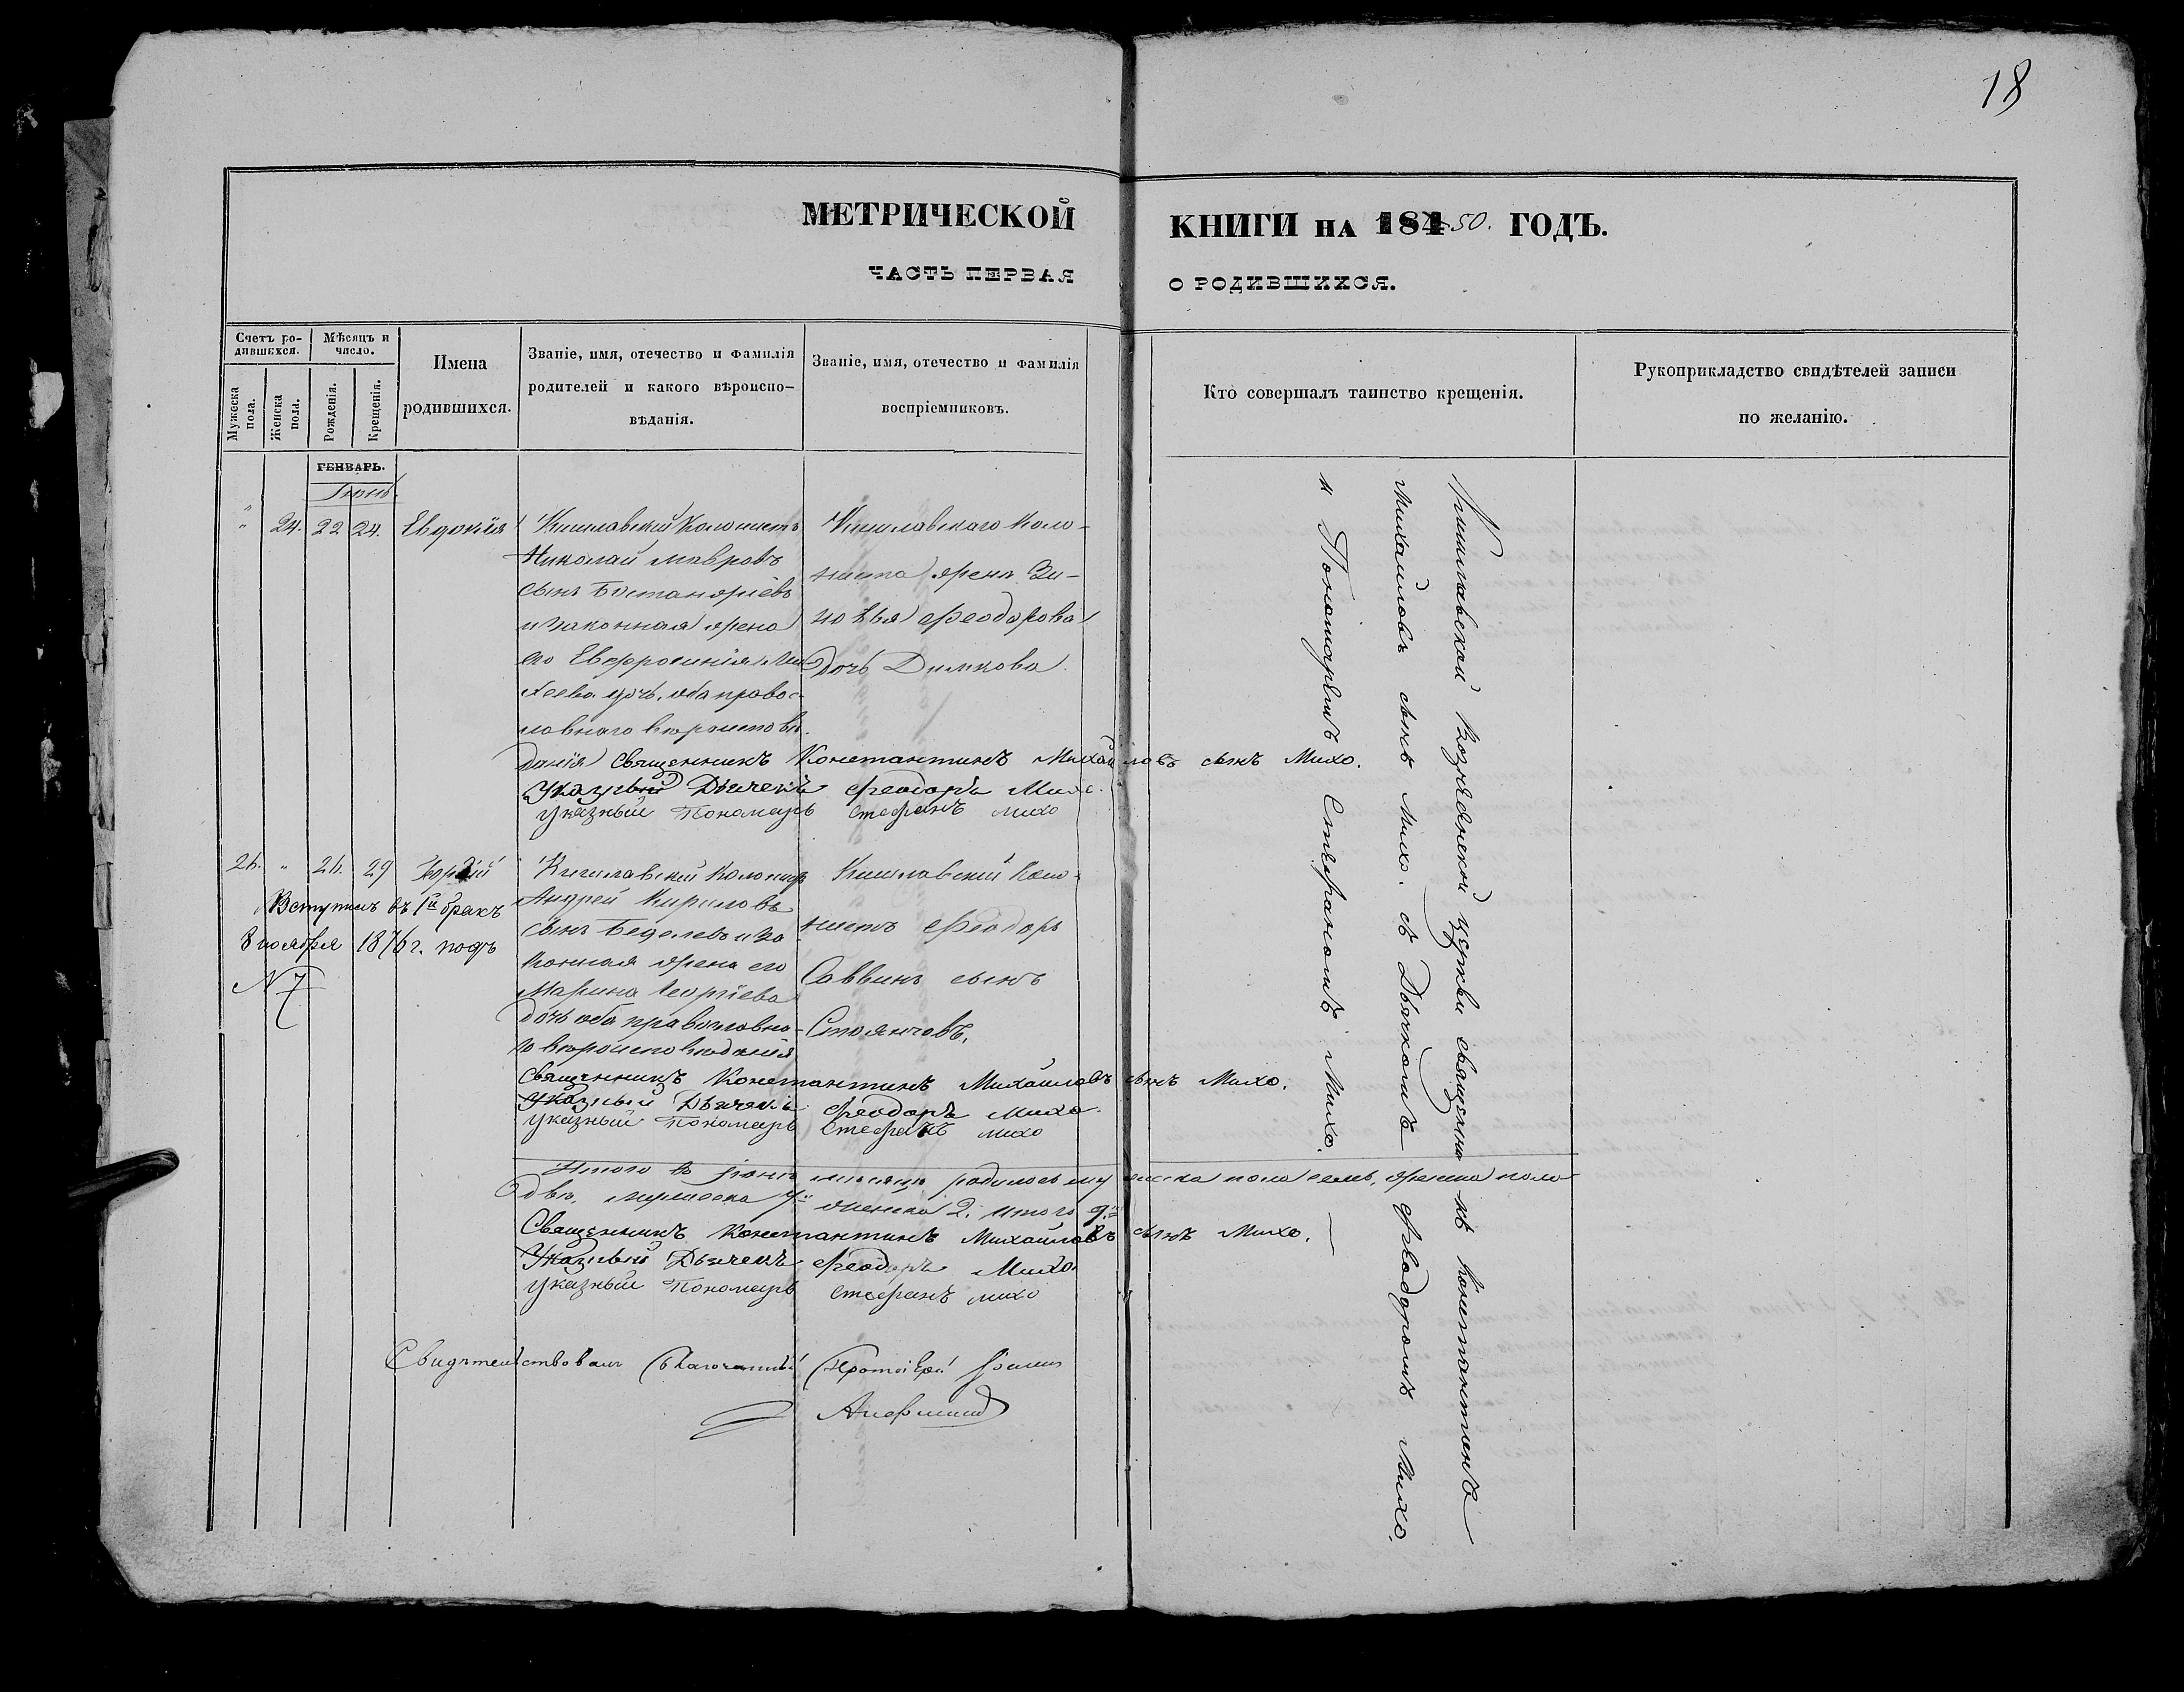 18
МЕТРИЧЕСКОЙ КНИГИ НА 18450. ГОДЪ.
ЧАСТЬ ПЕРВАЯ О РОДИВШИХСЯ.
Счетъ родившихся.
Мужеска пола.
Женска пола.
Мѣсяцъ и число.
Рожденія.
Крещенія.
Имена родившихся.
Званіе, имя, отечество и фамилія
родителей и какого вѣроиспо-
вѣданія.
Званіе, имя, отечество и фамилія
воспріемниковъ.
Кто совершалъ таинство крещенія.
Рукоприкладство свидѣтелей записи
по желанію.
ГЕНВАРЬ.
Іюнь.
" 24. 22 24. Евдокія
Кишлавскій Колонистъ
Николай Мавровъ
сынъ
и законная жена
его Евфросинія
дочь, оба правос-
лавнаго вѣроисповѣ-
данія
Кишлавскаго Коло-
ниста жена Зи-
новья Феодорова
дочь Димкова.
Священникъ Константинъ Михайловъ сынъ Михо.
Указный Дьячекъ Феодоръ Михо.
Указный Пономарь Стефанъ Михо
26. " 26. 29
Вступилъ въ 1й бракъ
8 ноября 1876 г. подъ
N 7
Кишлавскій Колонистъ
Андрей Кириловъ
сынъ Беделевъ и за
конная жена его
Марина Георгіева
дочь оба православна-
го вѣроисповѣданія
Кишлавскій Коло-
нистъ Феодоръ
Саввинъ сынъ
Стоянговъ.
Священникъ Константинъ Михайловъ сынъ Михо.
Указный Дьячекъ Феодоръ Михо.
Указный Пономарь Стефанъ Михо
Итого въ іюнѣ мѣсяцѣ родилось мужеска пола семь, женска пола
двѣ, мужеска 7. женска 2. итого 9.
Священникъ Константинъ Михайловъ сынъ Михо.
Указный Дьячекъ Феодоръ Михо.
Указный Пономарь Стефанъ Михо
Свидѣтельствовалъ Благочинный Протоіерей
Кишлавской церкви священникъ Константинъ
Михайловъ сынъ Михо. съ Дьячкомъ Феодоромъ Михо.
и Пономаремъ Стефаномъ Михо.